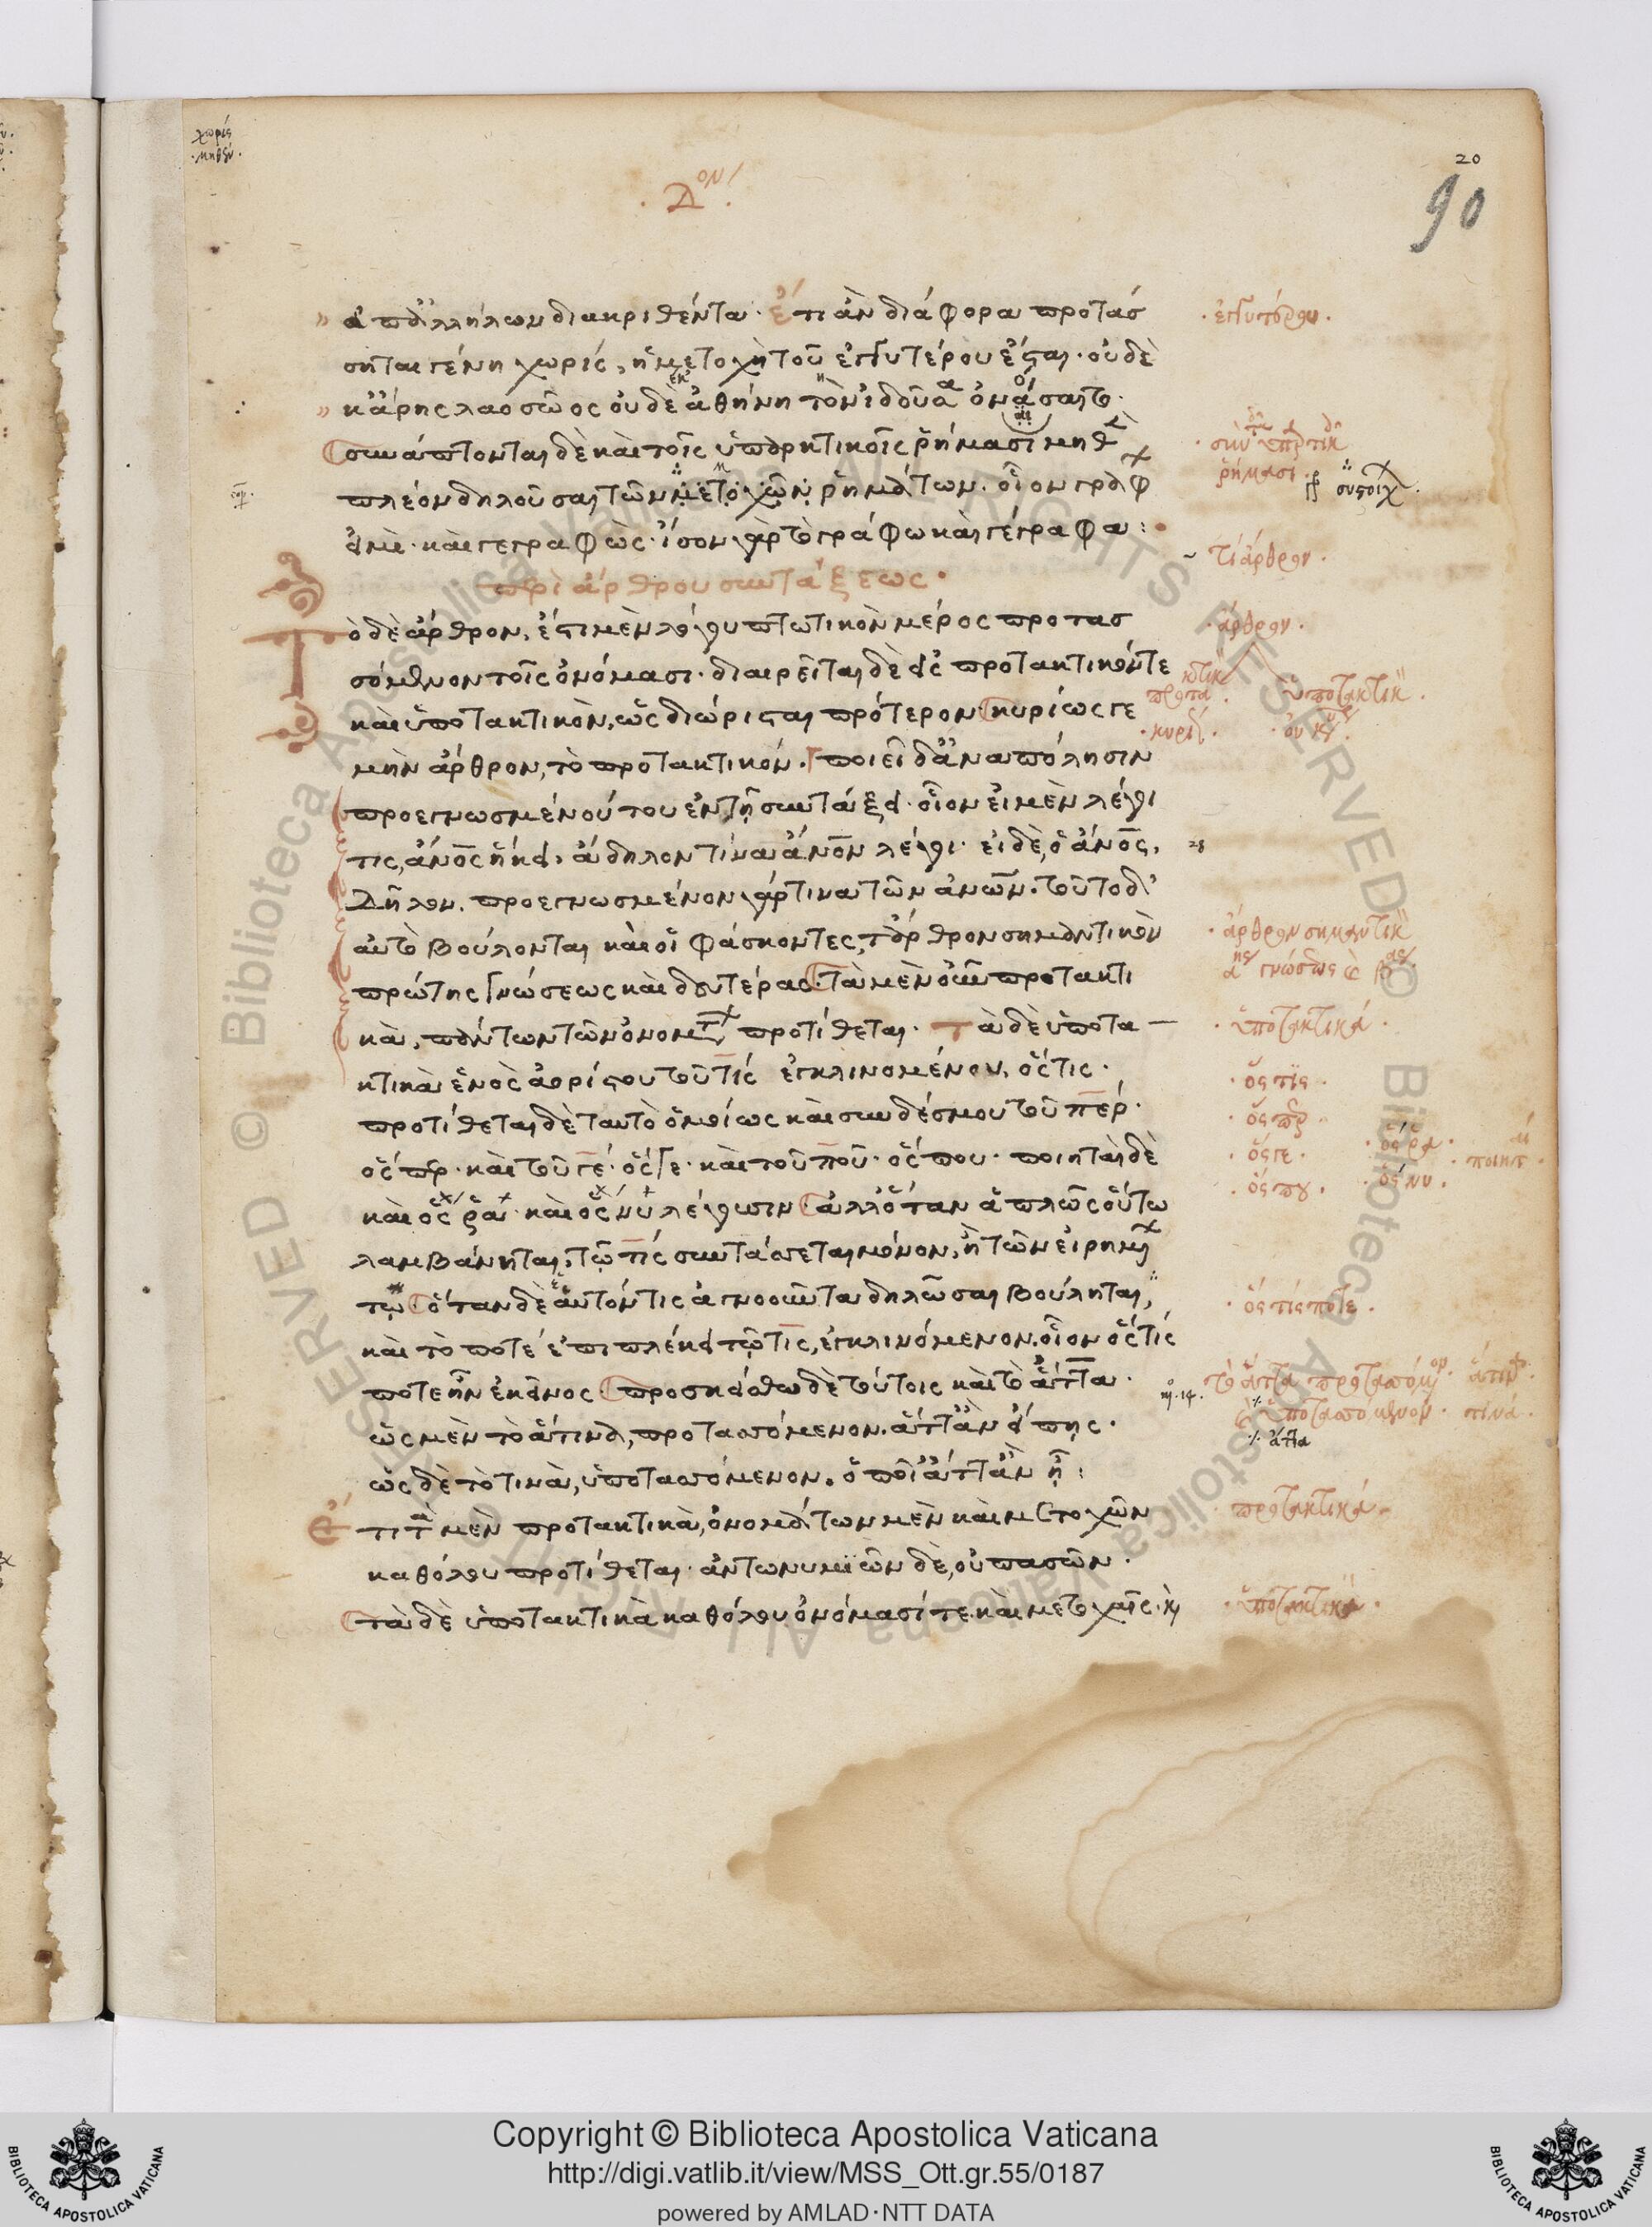 χωρίς
μηθέν
20
90
Δον
ἀπ' ἀλλήλων διακριθέντα· ἔτι ἂν διάφορα προτάσ
σηται γένη χωρίς, ἡ μετοχὴ τοῦ ἐγγυτέρου ἔσται· οὐδὲ
κ' ἄρης λαοσσόος οὐδὲ ἀθήνη τόν γ' ἰδοῦσ' ὀνόσαιτο·
συνάπτονται δὲ καὶ τοῖς ὑπαρκτικοῖς ῥήμασι μηθὲν
πλέον δηλοῦσαι τῶν μετοχῶν ῥημάτων· οἷον γράφ
ων εἰμὶ· καὶ γεγραφὼς· ἴσον γὰρ τὸ γράφω καὶ γέγραφα:
περὶ ἄρθρου συντάξεως·
Τὸ δὲ ἄρθρον, ἔστι μὲν λόγου πτωτικὸν μέρος προτασ
σόμενον τοῖς ὀνόμασι· διαιρεῖται δὲ εἰς προτακτικόν τε
καὶ ὑποτακτικὸν, ὡς διώρισται πρότερον· κυρίως γε
μὴν ἄρθρον, τὸ προτακτικόν· ποιεῖ δ' ἀναπόλησιν
προεγνωσμένου του ἐν τῇ συντάξει· οἷον εἰ μὲν λέγει
τις, ἄνος ἥκει, ἄδηλον τίνα ἄνον λέγει· εἰ δὲ, ὁ ἄνος,
δῆλον, προεγνωσμένον γάρ τινα τῶν ἀνων· τοῦτο δ'
αὐτὸ βούλονται καὶ οἱ φάσκοντες, τἄρθρον σημαντικὸν
πρώτης γνώσεως καὶ δευτέρας· τὰ μὲν οὖν προτακτι
κὰ, πάντων τῶν ὀνομάτων προτίθεται· τὰ δὲ ὑποτα
κτικὰ ἑνὸς ἀορίστου τοῦ τίς ἐγκλινομένου, ὅστις·
προτίθεται δὲ ταυτὸ ὁμοίως καὶ συνδέσμου τοῦ πέρ·
ὅσπερ· καὶ τοῦ γέ· ὅσγε· καὶ τοῦ πού· ὅσπου· ποιηταὶ δὲ
καὶ ὅς ῥα· καὶ ὅς νυ λέγουσιν· ἀλλ' ὅταν ἁπλῶς οὕτω
λαμβάνηται, τῷ τίς συντάσσεται μόνον, ἢ τῶν εἰρημένων
τῳ· ὅταν δὲ ἑαυτόν τις ἀγνοοῦντα δηλῶσαι βούληται,
καὶ τὸ ποτέ ἐπιπλέκει τῷ τις, ἐγκλινόμενον· οἷον ὅστίς
ποτε ἦν ἐκεῖνος· προσκείσθω δὲ τούτοις καὶ τὸ ἅττα·
ὡς μὲν τὸ ἅτινα, προτασσόμενον· ἅττ' ἂν εἴπῃς·
ὡς δὲ τὸ τινὰ, ὑποτασσόμενον· ὁποῖ' ἄττ' ἂν ᾖ:
Ἔτι τὰ μὲν προτακτικὰ, ὀνομάτων μὲν καὶ μετοχῶν
καθόλου προτίθεται· ἀντωνυμιῶν δὲ, οὐ πασῶν·
τὰ δὲ ὑποτακτικὰ καθόλου ὀνόμασί τε καὶ μετοχαῖς· καὶ
ἐγγυτέρου
ῥήμασι
συστοιχ
τί ἄρθρον
ἄρθρον
ὑποτακτικ
ἄρθρον σημαντικ
ὑποτακτικά
ὅστις
ὅσπερ
ὅσγε
ὅς ῥα
ὅς νυ
ὅσπου
ὅστίς ποτε
τινά
ἄττα
προτακτικά
ὑποτακτικά
Copyright © Biblioteca Apostolica Vaticana
http://digi.vatlib.it/view/MSS_Ott.gr.55/0187
powered by AMLAD·NTT DATA